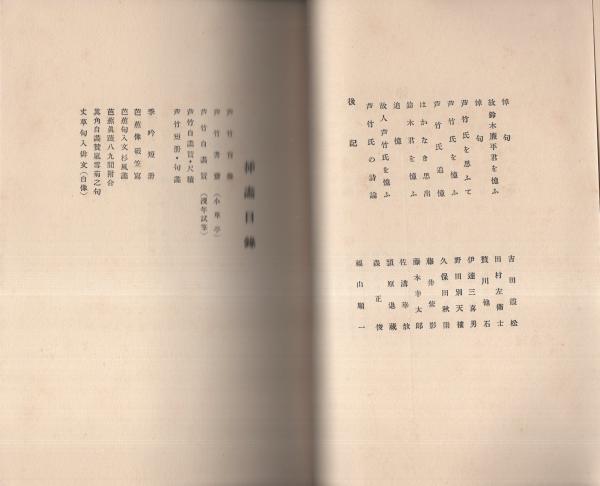 悼句 吉田露松
故鈴木廉平君を憶ふ 田村左衛士
悼句 籔川他石
芦竹氏を思ふて 伊達三喜男
芦竹氏を憶ふ 野田別天樓
芦竹氏追憶 久保田秋陽
はかなき思出 藤井紫影
鈴木君を憶ふ 藤本幸太郎
追憶 佐溝華放
故人芦竹氏を憶ふ 潁原退蔵
芦竹氏の詩論 森正俊
後記 福山順一
挿畫目錄
芦竹肖像
芦竹書齋(小隼亭)
芦竹自畫賛(漫年試筆)
芦竹自畫賛・尺牘
芦竹短册・句畫
季吟短册
芭蕉像破笠寫
芭蕉句入文杉風畫
芭蕉眞蹟八九間附合
其角自畫賛嵐雪菊之句
丈草句入俳文(自像)